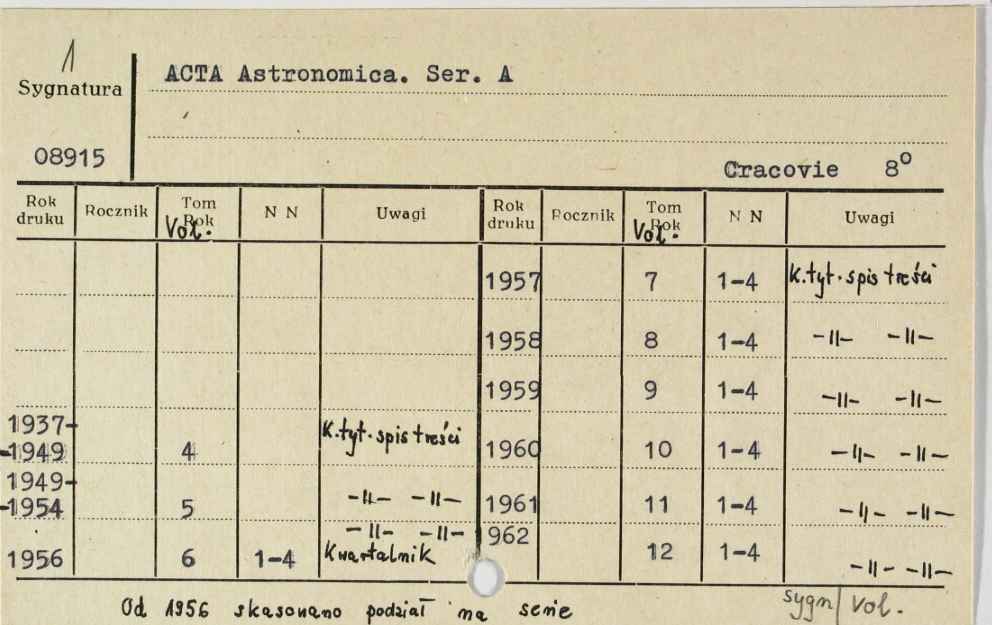 1
Sygnatura
ACTA Astronomica. Ser. A
08915
Cracovie 8°
Rok druku Rocznik Tom Rok Vol. N N Uwagi Rok druku Rocznik Tom Rok Vol. N N Uwagi
1957 7 1-4 K.tyt. spis treści
1958 8 1-4 -II- -II-
1959 9 1-4 -II- -II-
1937-
-1949 4 K.tyt. spis treści 1960 10 1-4 -II- -II-
1949-
-1954 5 -II- -II- 1961 11 1-4 -II- -II-
-II- -II- 962
1956 6 1-4 Kwartalnik 12 1-4 -II- -II-
Od 1956 skasowano podział na serie
sygn/vol.